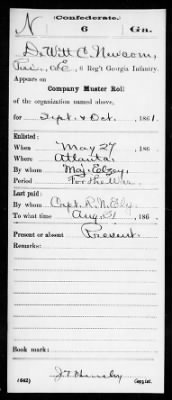 (Confederate.)
N 6 Ga.
DeWitt C. Newsom,
Priv., Co. E, 6 Reg't Georgia Infantry.
Appears on
Company Muster Roll
of the organization named above,
for Sept. & Oct., 1861.
Enlisted:
When May 27, 186 .
Where Atlanta
By whom Maj. Elzey,
Period For the War.
Last paid:
By whom Capt. R. N. Ely,
To what time Aug. 31, 186 .
Present or absent Present.
Remarks:
Book mark:
(642) Copyist.